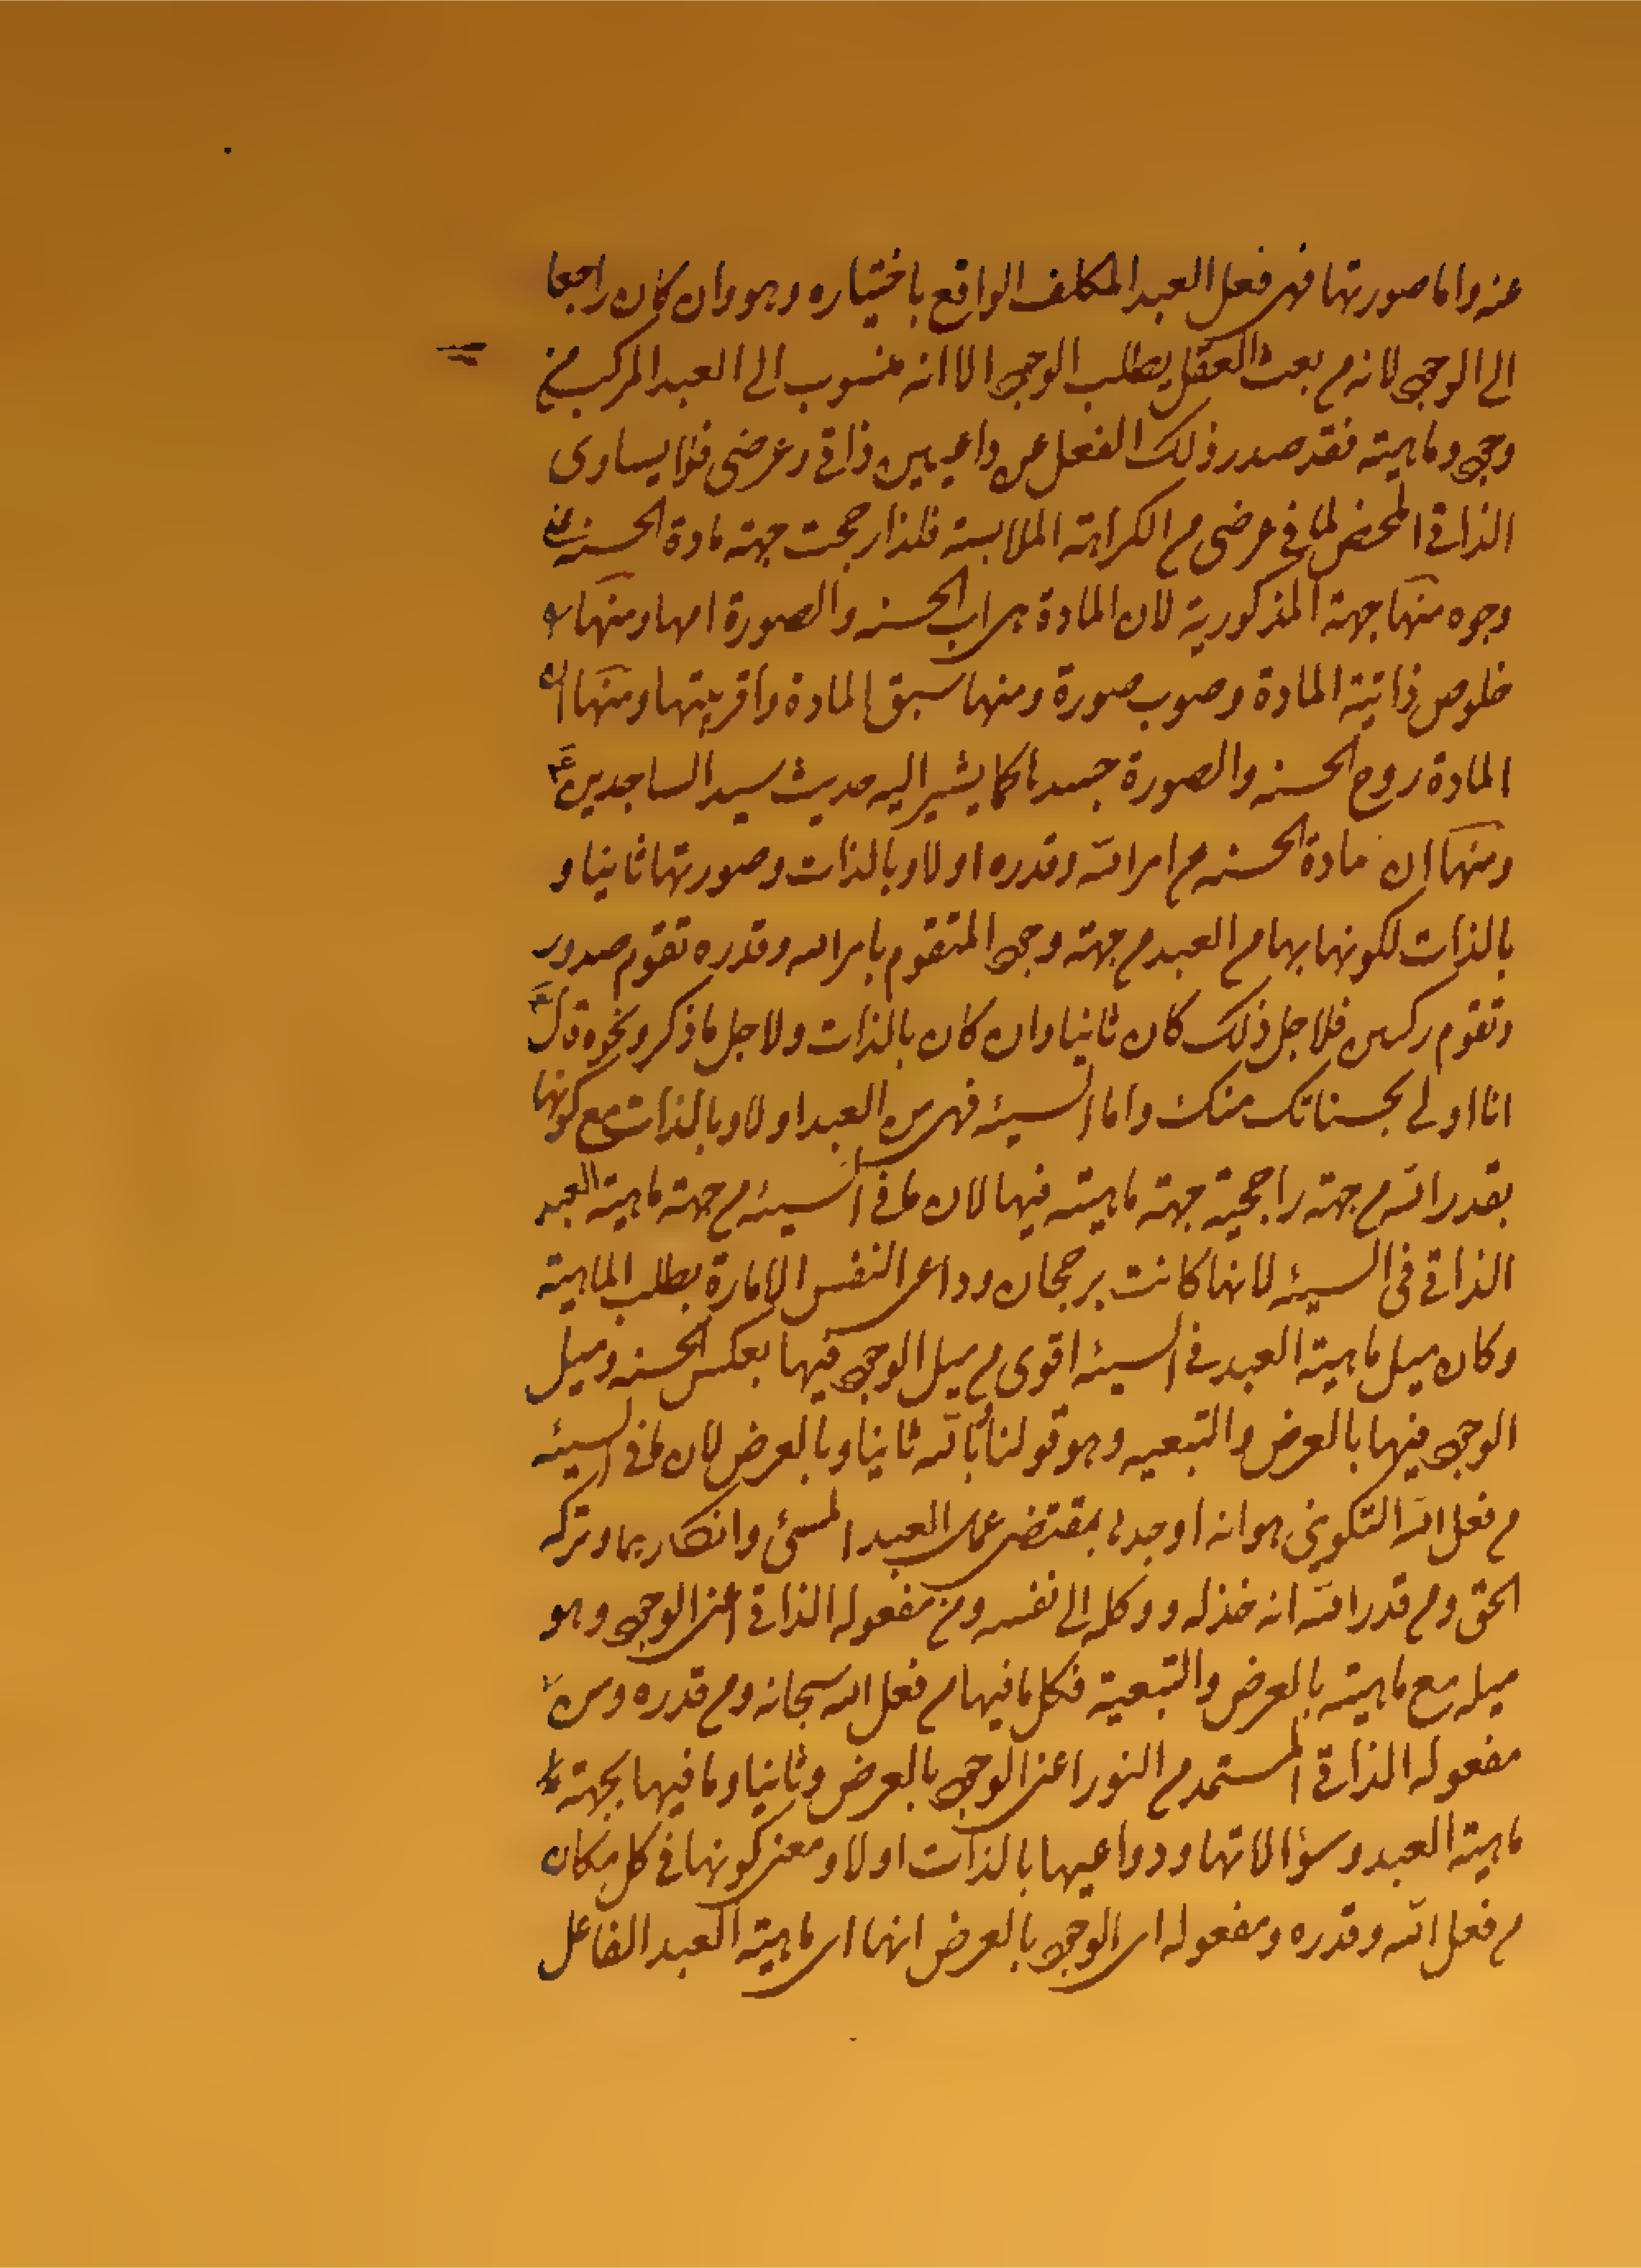 عنه واما صورتها فهى فعل العبد المكلف الواقع باختياره وهو وان كان راجعا
الى الوجى لانه م بعث العقل بطلب الوجى الا انه منسوب الى العبد المركب من
وجى وماهيته فقد صدر ذلك الفعل عن داعيين ذاتى وعرضى فلا يساوى
الذاتى المحض لما فى عرضى م الكراهة الملابسة فلذا رجحت جهة مادة الحسنه من
وجوه منها جهة المذكورية لان المادة هى اب الحسنه والصورة امها ومنها
خلوص ذاتية المادة وصوب صورة ومنها سبق المادة واقربيتها ومنها ان
المادة روح الحسنه والصورة جسدها كما يشير اليه حديث سيد الساجدين ع
ومنها ان مادة الحسنه م امر الله وقدره اولا وبالذات وصورتها ثانيا و
بالذات لكونها بها م العبد م جهة وجى المتقوم بامر الله وقدره تقوم صدور
وتقوم ركن فلاجل ذلك كان ثانيا وان كان بالذات ولاجل ما ذكر ونحوه قال
انا اولى بحسناتك منك واما السيئه فهى من العبد اولا وبالذات مع كونها
بقدر الله م جهة راجحية جهة ماهيته فيها لان ما فى السيئه م جهة ماهية العبد
الذاتى فى السيئه لانها كانت برجحان ودواعى النفس الامارة بطلب الماهية
وكان ميل ماهية العبد فى السيئه اقوى م ميل الوجى فيها بعكس الحسنه وميل
الوجى فيها بالعرض والتبعيه وهو قولنا بالله ثانيا وبالعرض لان ما فى السيئه
م فعل الله التكوينى هو انه اوجدها بمقتضى عمل العبد المسئى وانكار بما وتركه
الحق وم قدر الله انه خذله ووكله الى نفسه ومن مفعوله الذاتى اعنى الوجى وهو
ميله مع ماهيته بالعرض والتبعية فكل ما فيها م فعل الله سبحانه وم قدره ومن
مفعوله الذاتى المستمد م النور اعنى الوجى بالعرض وثانيا وما فيها بجهة
ماهية العبد وسؤالاتها ودواعيها بالذات اولا ومعنى كونها فى كل مكان
م فعل الله وقدره ومفعوله اى الوجى بالعرض انها اى ماهية العبد الفاعل